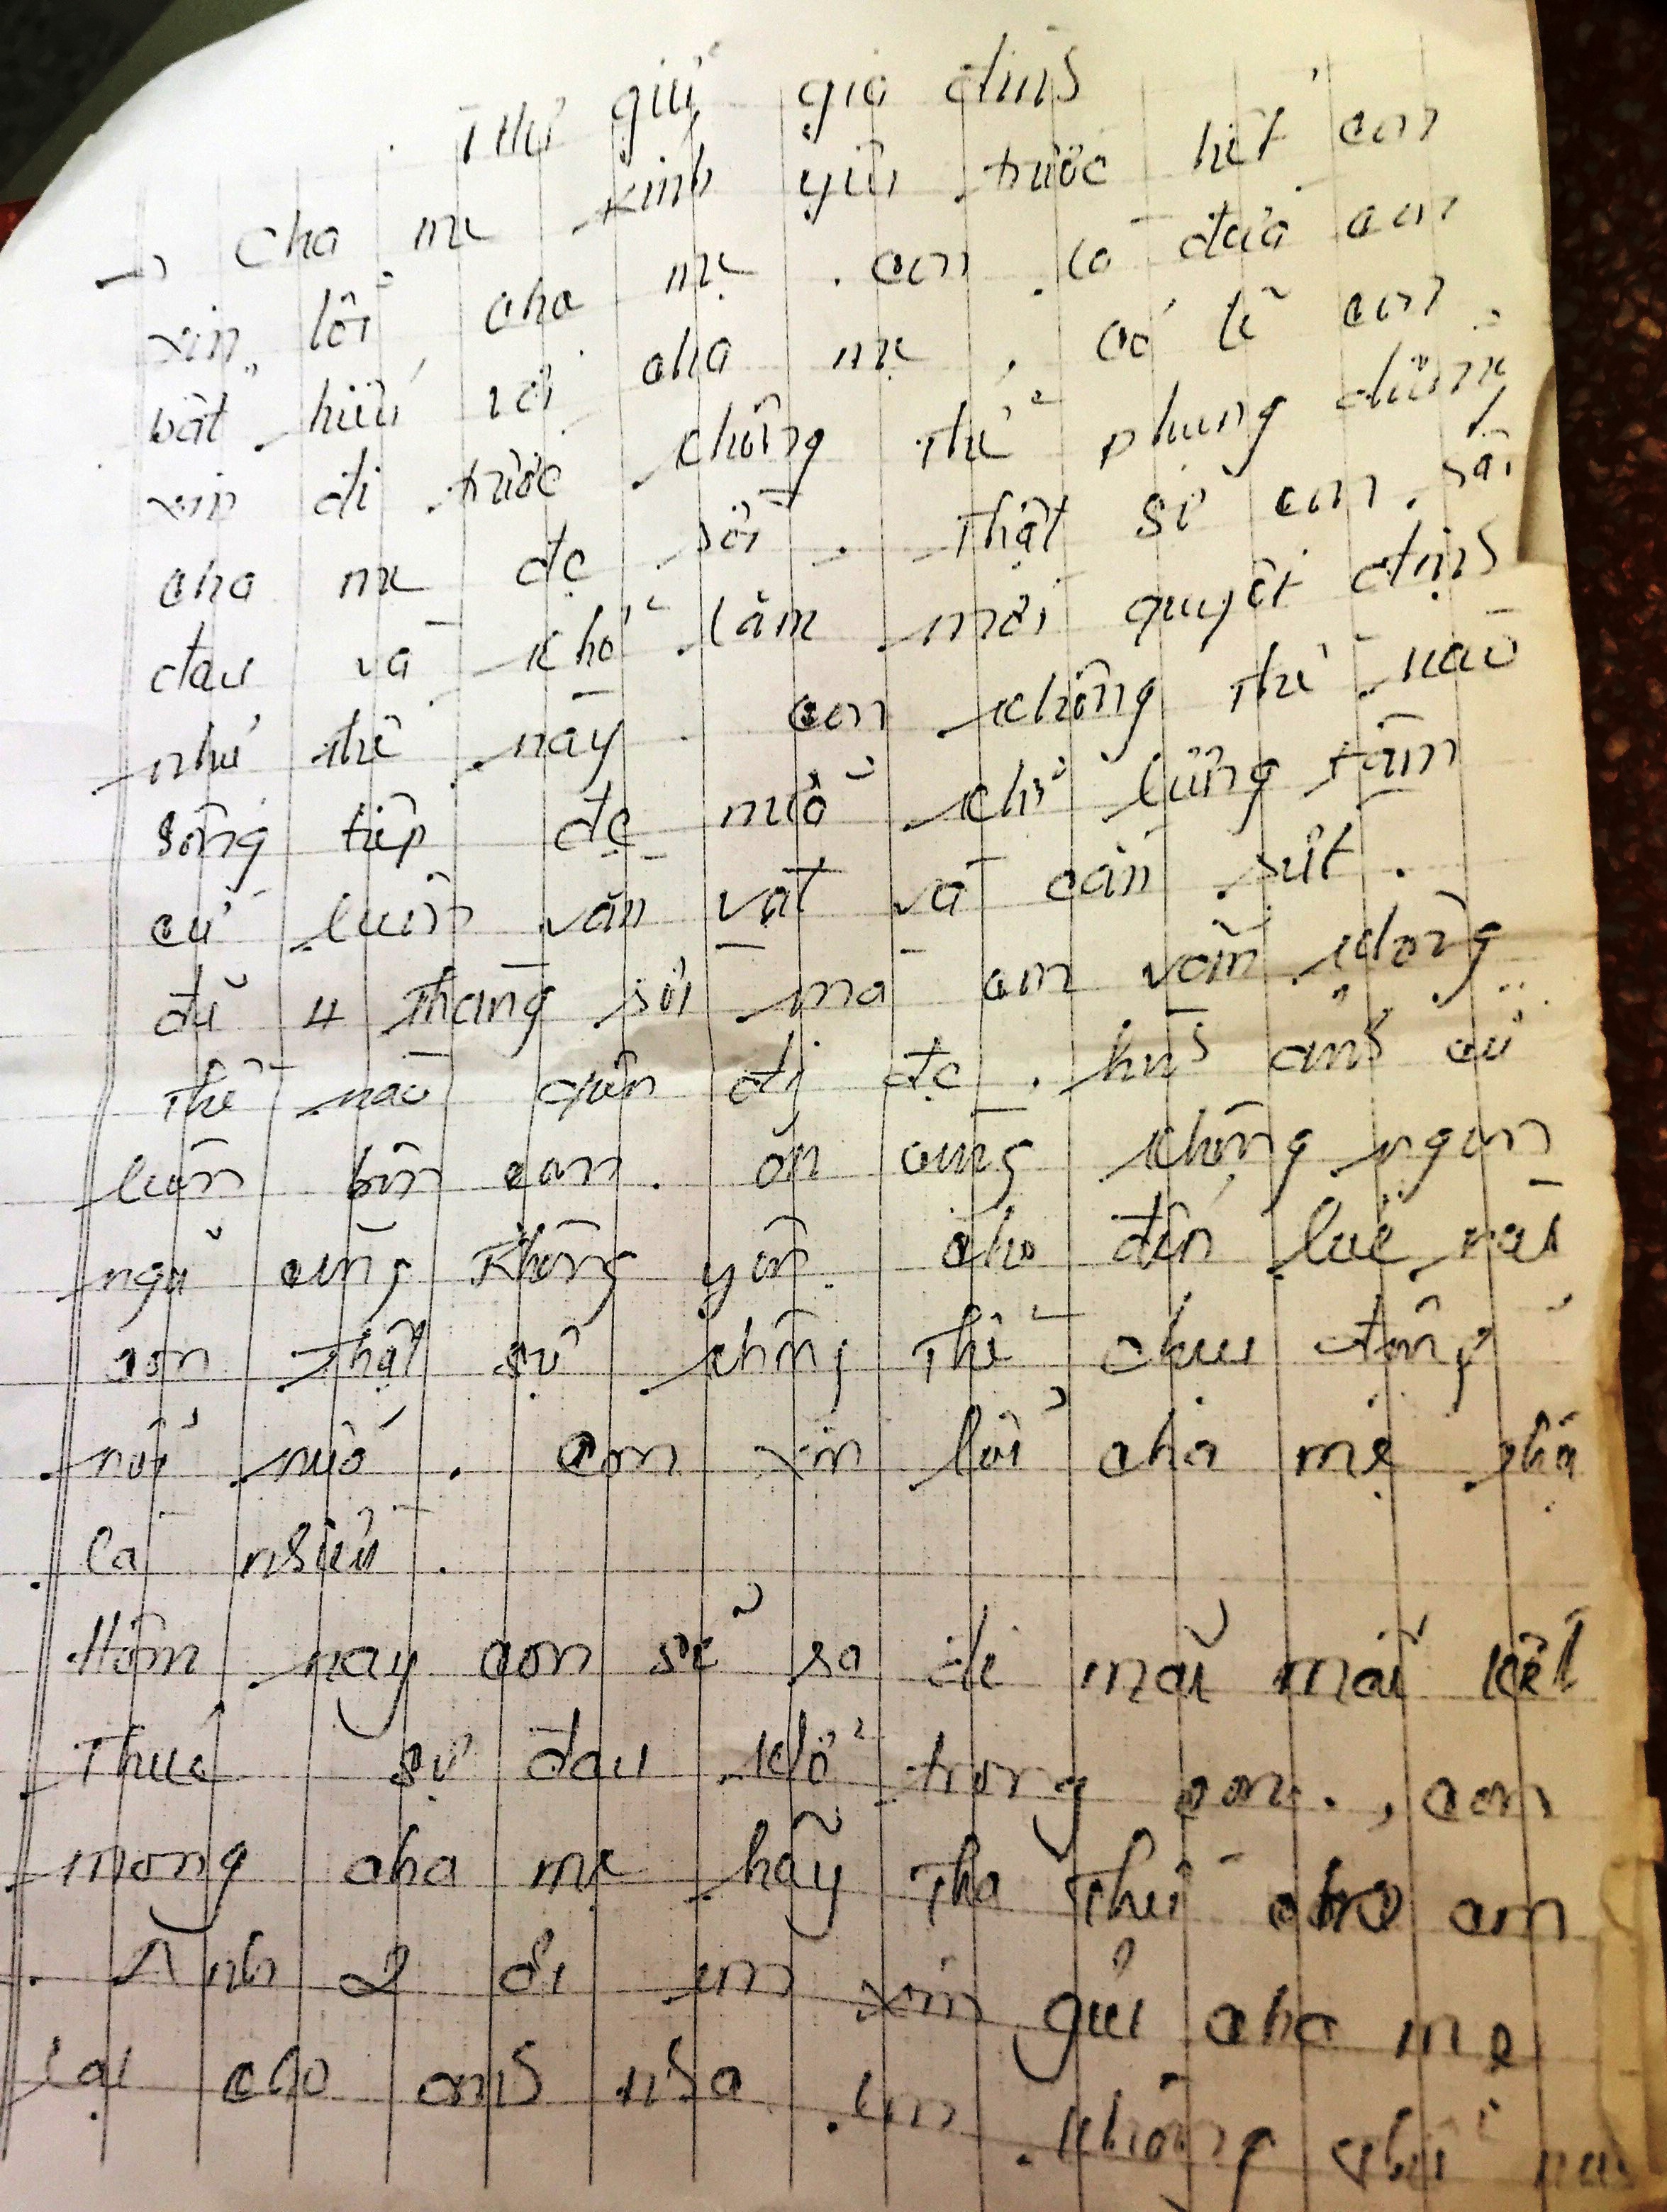 Thư gửi gia đình
→ Cha mẹ kính yêu trước hết con
xin lỗi cha mẹ. con là đứa con
bất hiếu với cha mẹ. có lẽ con
xin đi trước không thể phụng dưỡng
cha mẹ đc rồi. Thật sự con rất
đau và khổ lắm mới quyết định
như thế này. con không thể nào
sống tiếp đc nữa khi lương tâm
cứ luôn vằn vặt và cắn rứt.
đã 4 tháng rồi mà con vẫn không
thể nào quên đi đc. hình ảnh cứ
luôn bên con. ăn cũng không ngon
ngủ cũng không yên. cho đến lúc này
con thật sự không thể chịu đựng
nổi nữa. con xin lỗi cha mẹ thật
là nhiều.
Hôm nay con sẽ ra đi mãi mãi kết
thúc sự đau khổ trong con., con
mong cha mẹ hãy tha thứ cho con
. Anh 2 ơi em xin gửi cha mẹ
lại cho anh nha. em không thể